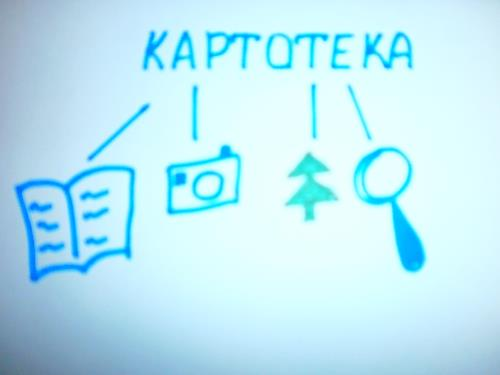 КАРТОТЕКА